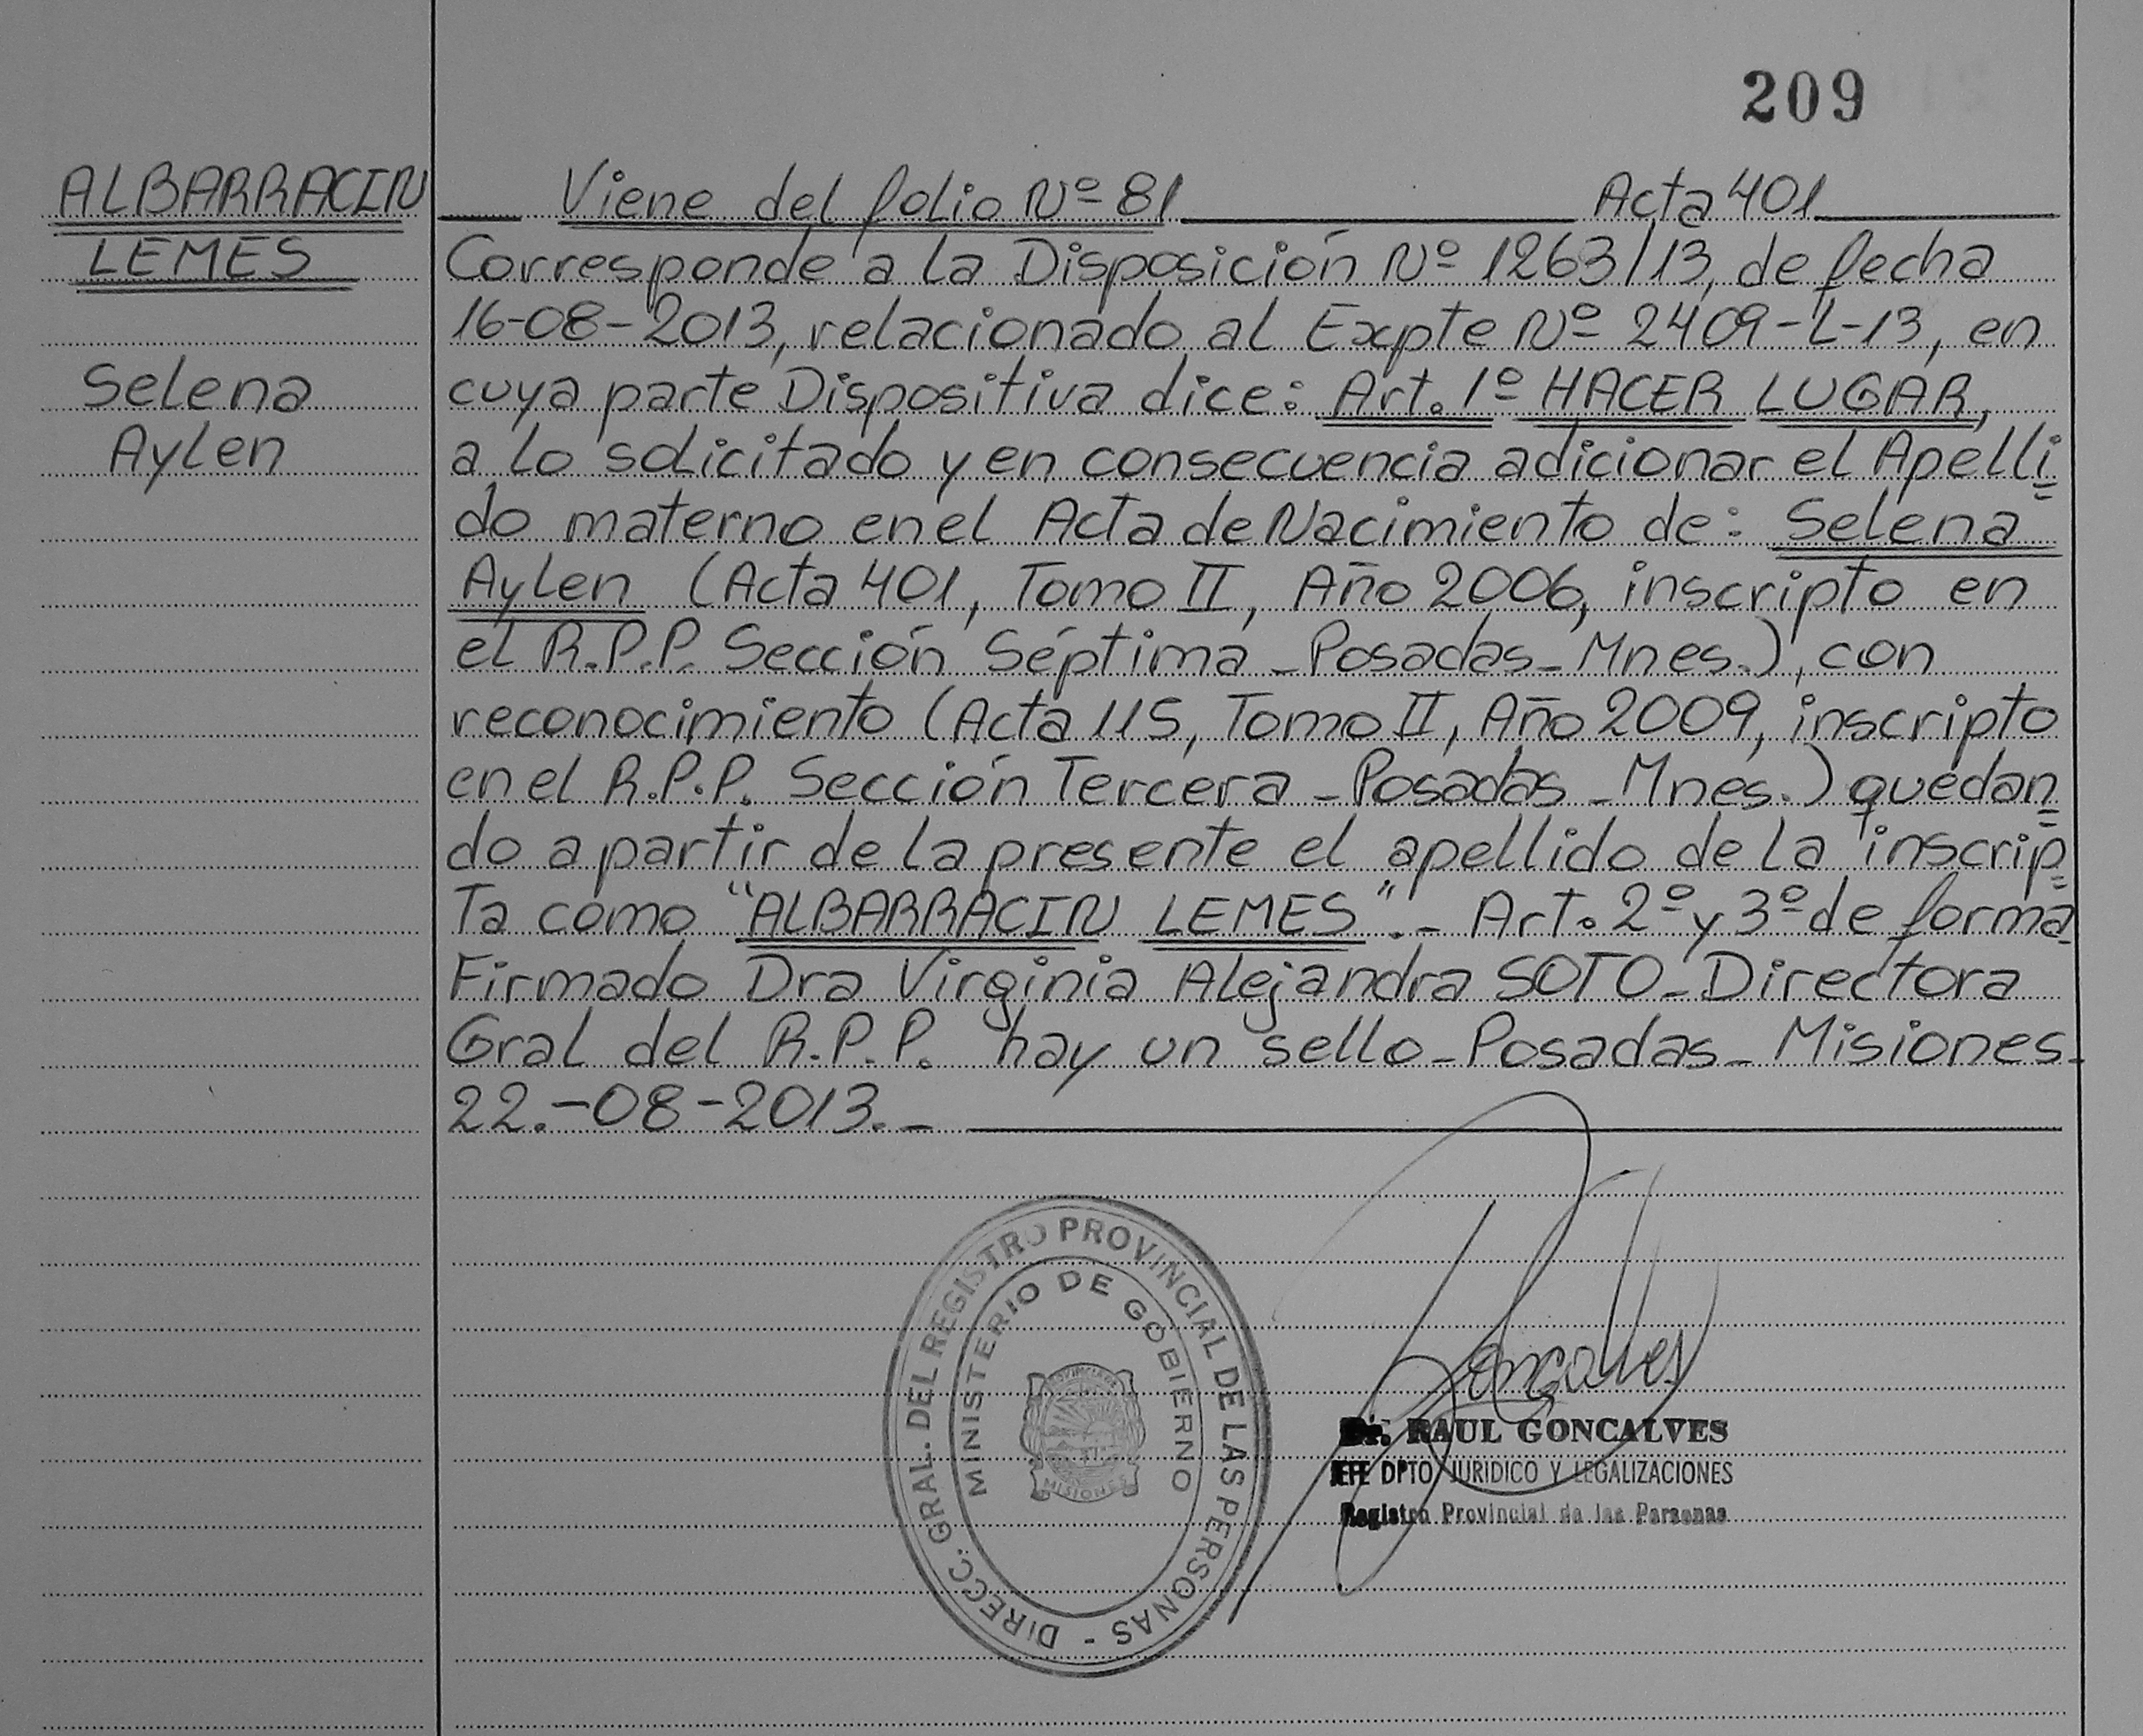 209
ALBARRACIN
LEMES
Selena
Aylen
Viene del folio Nº 81 Acta 401
Corresponde a la Disposición Nº 1263/13, de fecha
16-08-2013, relacionado al Expte Nº 2409-L-13, en
cuya parte Dispositiva dice: Art. 1º HACER LUGAR,
a lo solicitado y en consecuencia adicionar el Apelli=
do materno en el Acta de Nacimiento de: Selena
Aylen (Acta 401, Tomo II, Año 2006, inscripto en
el R.P.P. Sección Séptima - Posadas - Mnes.), con
reconocimiento (Acta 115, Tomo II, Año 2009, inscripto
en el R.P.P. Sección Tercera - Posadas - Mnes.) quedan=
do a partir de la presente el apellido de la inscrip=
Ta como "ALBARRACIN LEMES".- Art. 2º y 3º de forma
Firmado Dra Virginia Alejandra SOTO - Directora
Gral del R.P.P. hay un sello - Posadas - Misiones -
22.-08-2013.-
DIRECC. GRAL. DEL REGISTRO PROVINCIAL DE LAS PERSONAS -
MINISTERIO DE GOBIERNO
MISIONES
Goncalves
Dr. RAUL GONCALVES
JEFE DPTO JURIDICO Y LEGALIZACIONES
Registro Provincial de las Personas